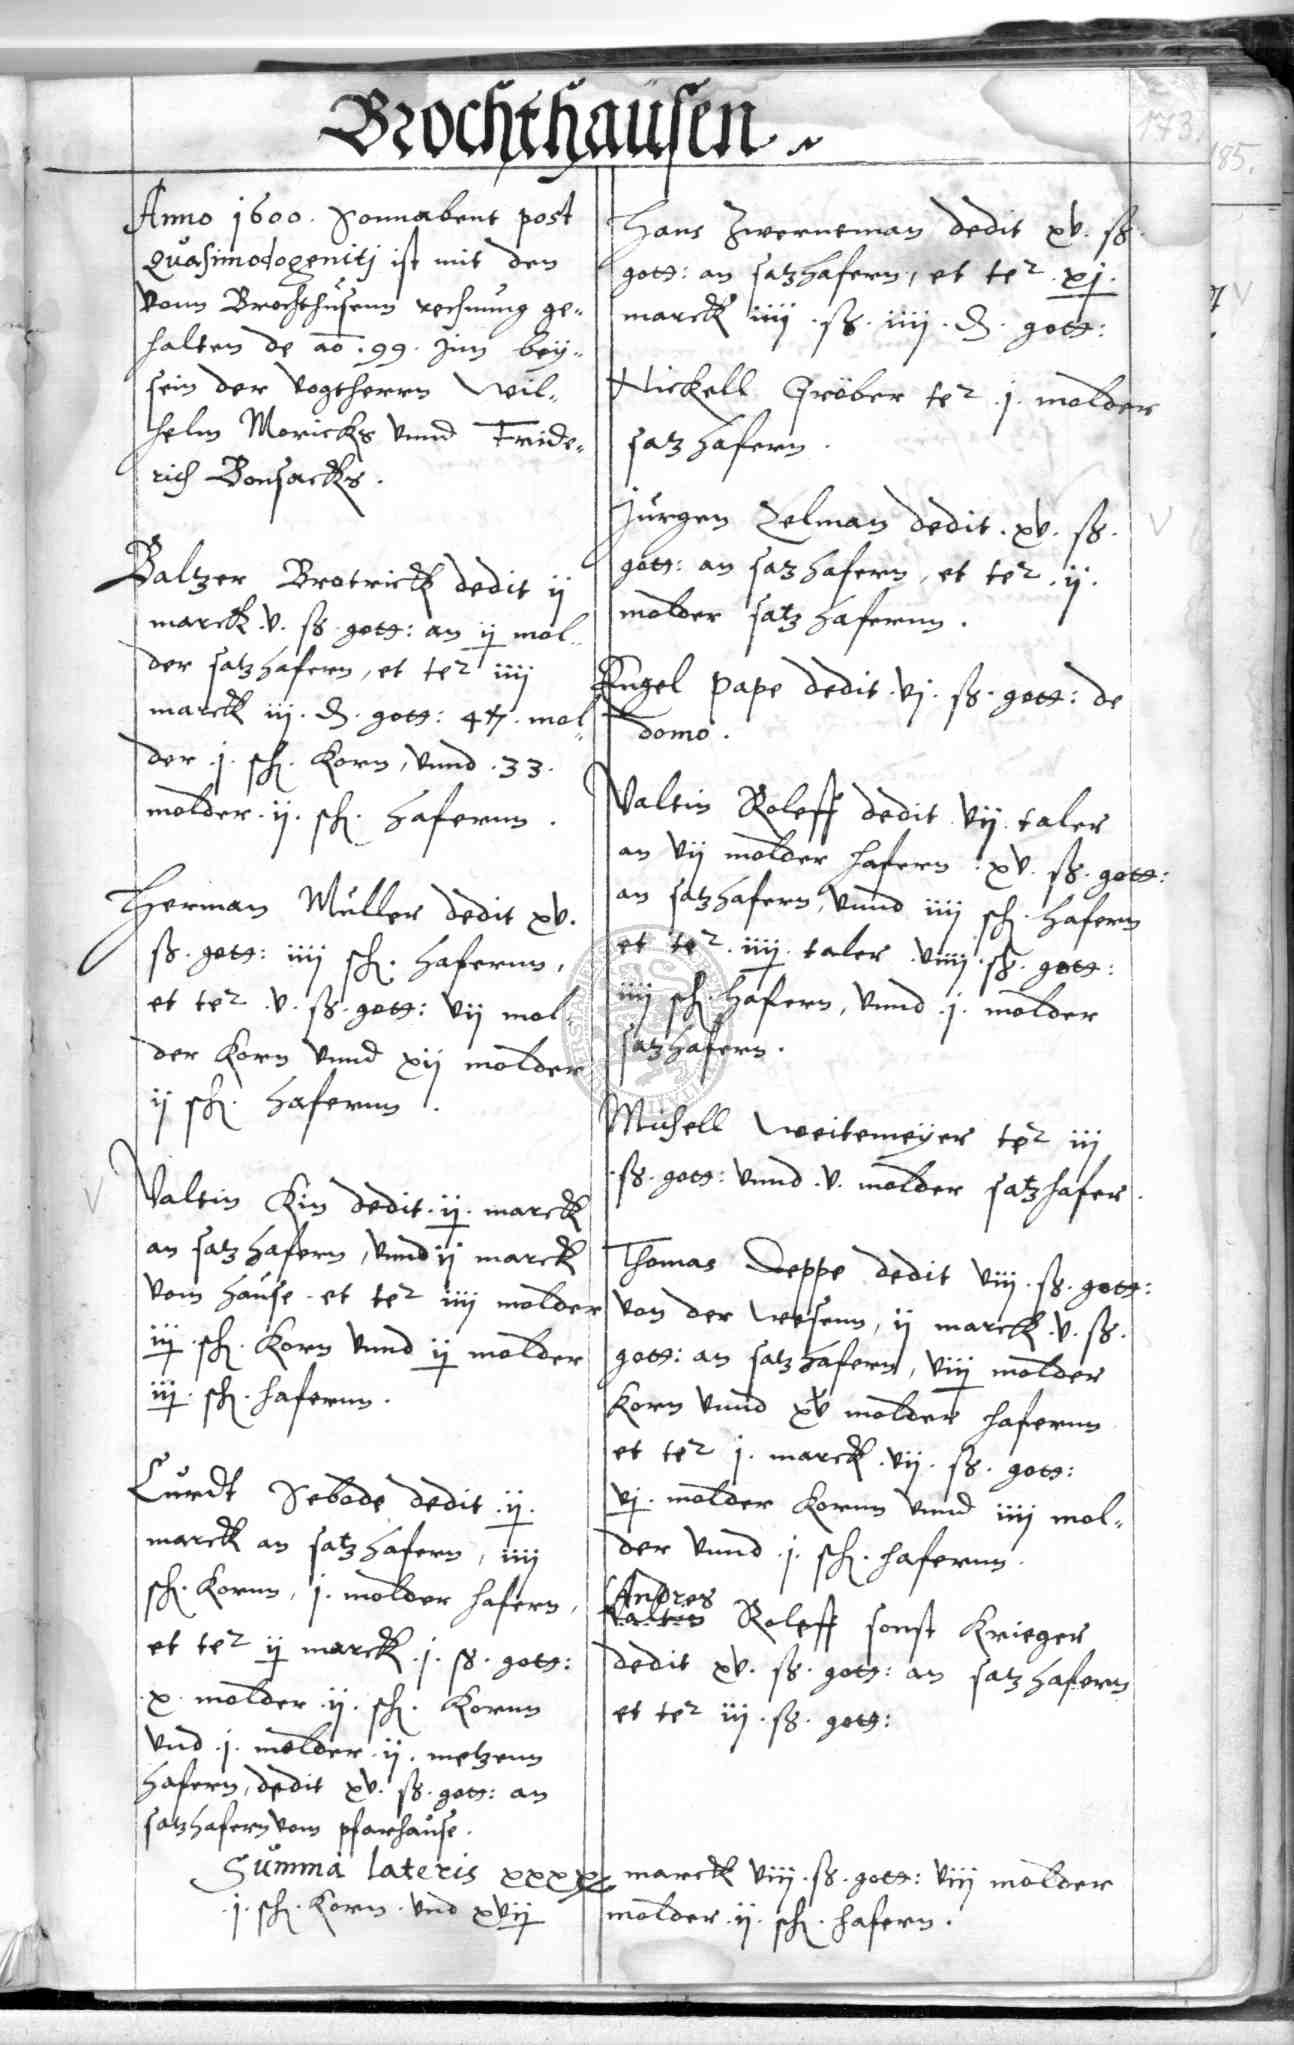 Brochthausen
173.
185.
Anno 1600. Sonnabent post
Quasimodogenitj ist mit den
vonn Brochthusenn rechnung ge„
halten de ao .99. Jnn bey„
sein der vogtherrn Wil„
helm Moricks vnnd Fride„
rich Bonsacks.
Baltzer Brotrick dedit ij
marck .v. ß. gott: an ij mol„
der satzhafern, et ter iiij
marck iij. d. gott: 47. mol„
der .j. sch. Korn, vnnd .33.
molder .ij. sch. hafernn.
Herman Muller dedit xv.
ß. gott: iiij sch. hafernn,
et ter .v. ß. gott: vij mol„
der Korn vnnd xij molder
ij sch. hafernn.
Valtin Kin dedit .ij. marck
an satzhafern, vnnd ij marck
vom hause . et ter iiij molder
iij .sch. Korn vnnd ij molder
iij. sch. hafernn.
Curdt Sebode dedit .ij.
marck an satzhafern, iiij
sch. Kornn, j. molder hafern,
et ter ij marck .j. ß. gott:
.x. molder .ij. sch. Kornn
vnd .j. molder .ij. metzenn
hafern, dedit xv. ß. gott: an
satzhafern vom pfarhause.
Hans Zwerneman dedit xv. ß.
gott: an satzhafern, et ter .xj.
marck iiij .ß. iiij. d. gott:
Nickell Gröber ter .j. molder
satzhafern.
Jürgen Zelman dedit .xv. ß.
gott: an satzhafern, et ter .ij.
molder satzhafernn.
Engel Pape dedit .vj. ß. gott: de
domo.
Valtin Roleff dedit vij. taler
an vij molder hafern . xv. ß. gott:
an satzhafern, vnnd iiij sch. hafern
et ter .iiij. taler viiij .ß. gott:
iiij sch. hafern, vnnd .j. molder
satzhafern.
Michell Weitemeyer ter iij
.ß. gott: vnnd .v. molder satzhafer.
Thomas Deppe dedit viij .ß. gott:
von der wesenn, ij marck .v. ß.
gott: an satzhafern, viij molder
Korn vnnd xv molder hafernn
et ter j. marck .vij. ß. gott:
vj. molder Kornn vnnd iiij mol„
der vnnd .j. sch. hafernn.
Andres
Valten Roleff sonst Krieger
dedit xv. ß. gott: an satzhafern
et ter iij .ß. gott:
Summa lateris marck viij .ß. gott: viij molder
.j. sch. Korn . vnd xvij molder .ij. sch. hafern.